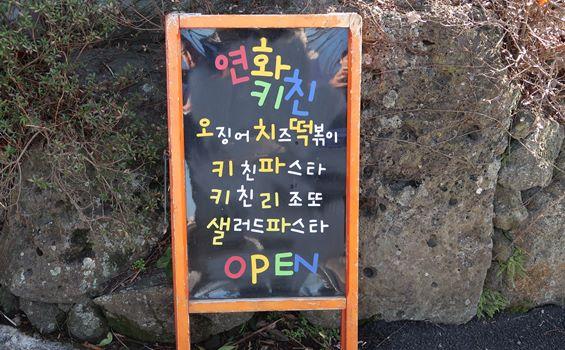 연화
키친
오징어치즈떡볶이
키친파스타
키친리조또
샐러드파스타
OPEN